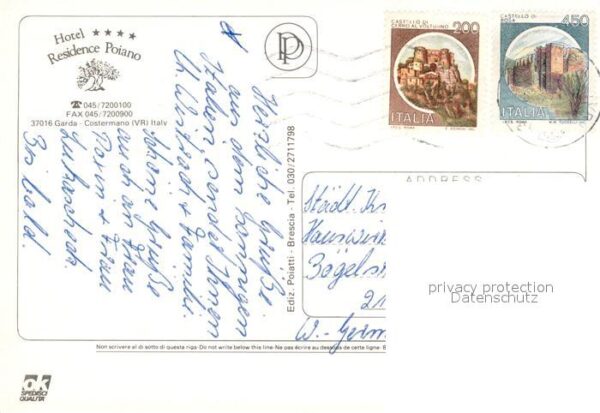 Hotel ★★★★
Residence Poiano
☎ 045/7200100
FAX 045/7200900
37016 Garda - Costermano (VR) Italy
CASTELLO DI
CERRO AL VOLTURNO
200
ITALIA
CASTELLO DI
450
ITALIA
ADDRESS
Herzliche Grüße
aus dem sonnigen
Italien sendet Ihnen
+ Familie.
schöne Grüße
auch an Frau
+ Frau
Bis bald.
Ediz. Poiatti - Brescia - Tel. 030/2711798
Städt.
Hauswirt
2
W-Germ
privacy protection
Datenschutz
Non scrivere al di sotto di questa riga-Do not write below this line-Ne pas écrire au dessous de cette ligne-
ok
SPEDISCI
QUALITÀ